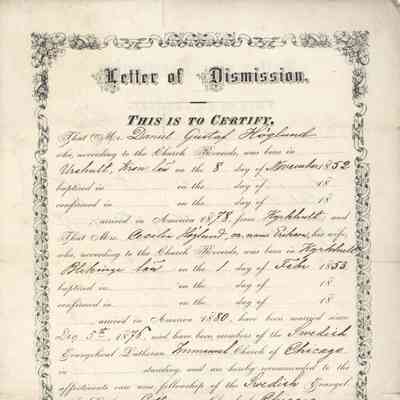 Letter of Dismission,
THIS IS TO CERTIFY,
That Mr. Daniel Gustaf Höglund
who, according to the Church Records, was born in
Urshult, Kron län on the 8. day of November 1852
baptised in on the day of 18
confirmed in on the day of 18
arrived in America 1878, from Hyrkhult, and
That Mrs. Cecilia Höglund, name Erikson, his wife,
who, according to the Church Records, was born in Kyrkhult
Blekinge län on the 1. day of Febr. 1853.
baptised in on the day of 18
confirmed in on the day of 18
arrived in America 1880, have been married since
Dec. 5th, 1876, and have been members of the Swedish
Evangelical Lutheran Immanuel Church of Chicago
in standing, and are hereby recommended to the
affectionate care and fellowship of the Swedish Evangel
Chicago